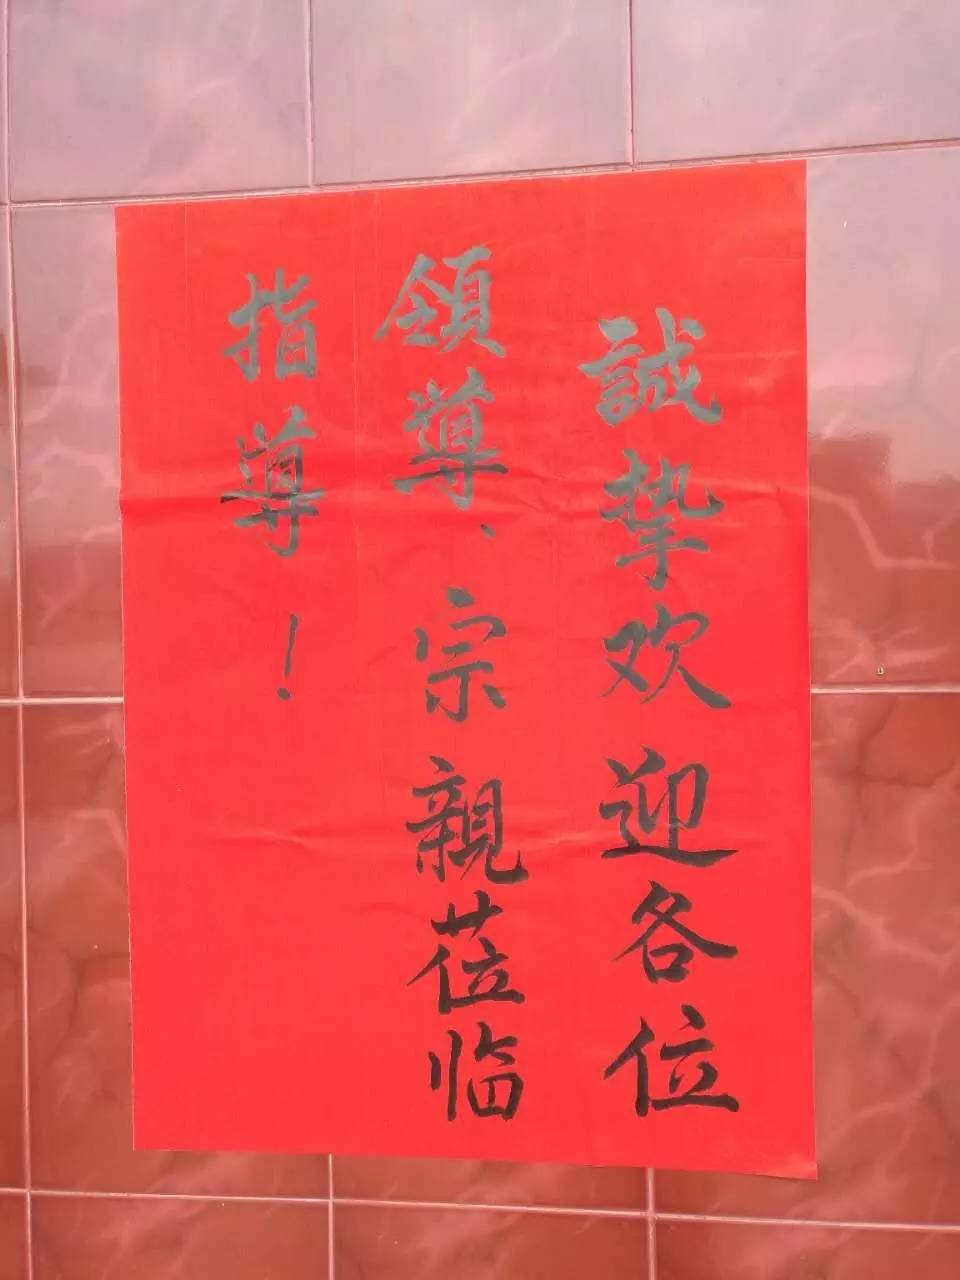 誠挚欢迎各位
領導、宗親莅临
指導！